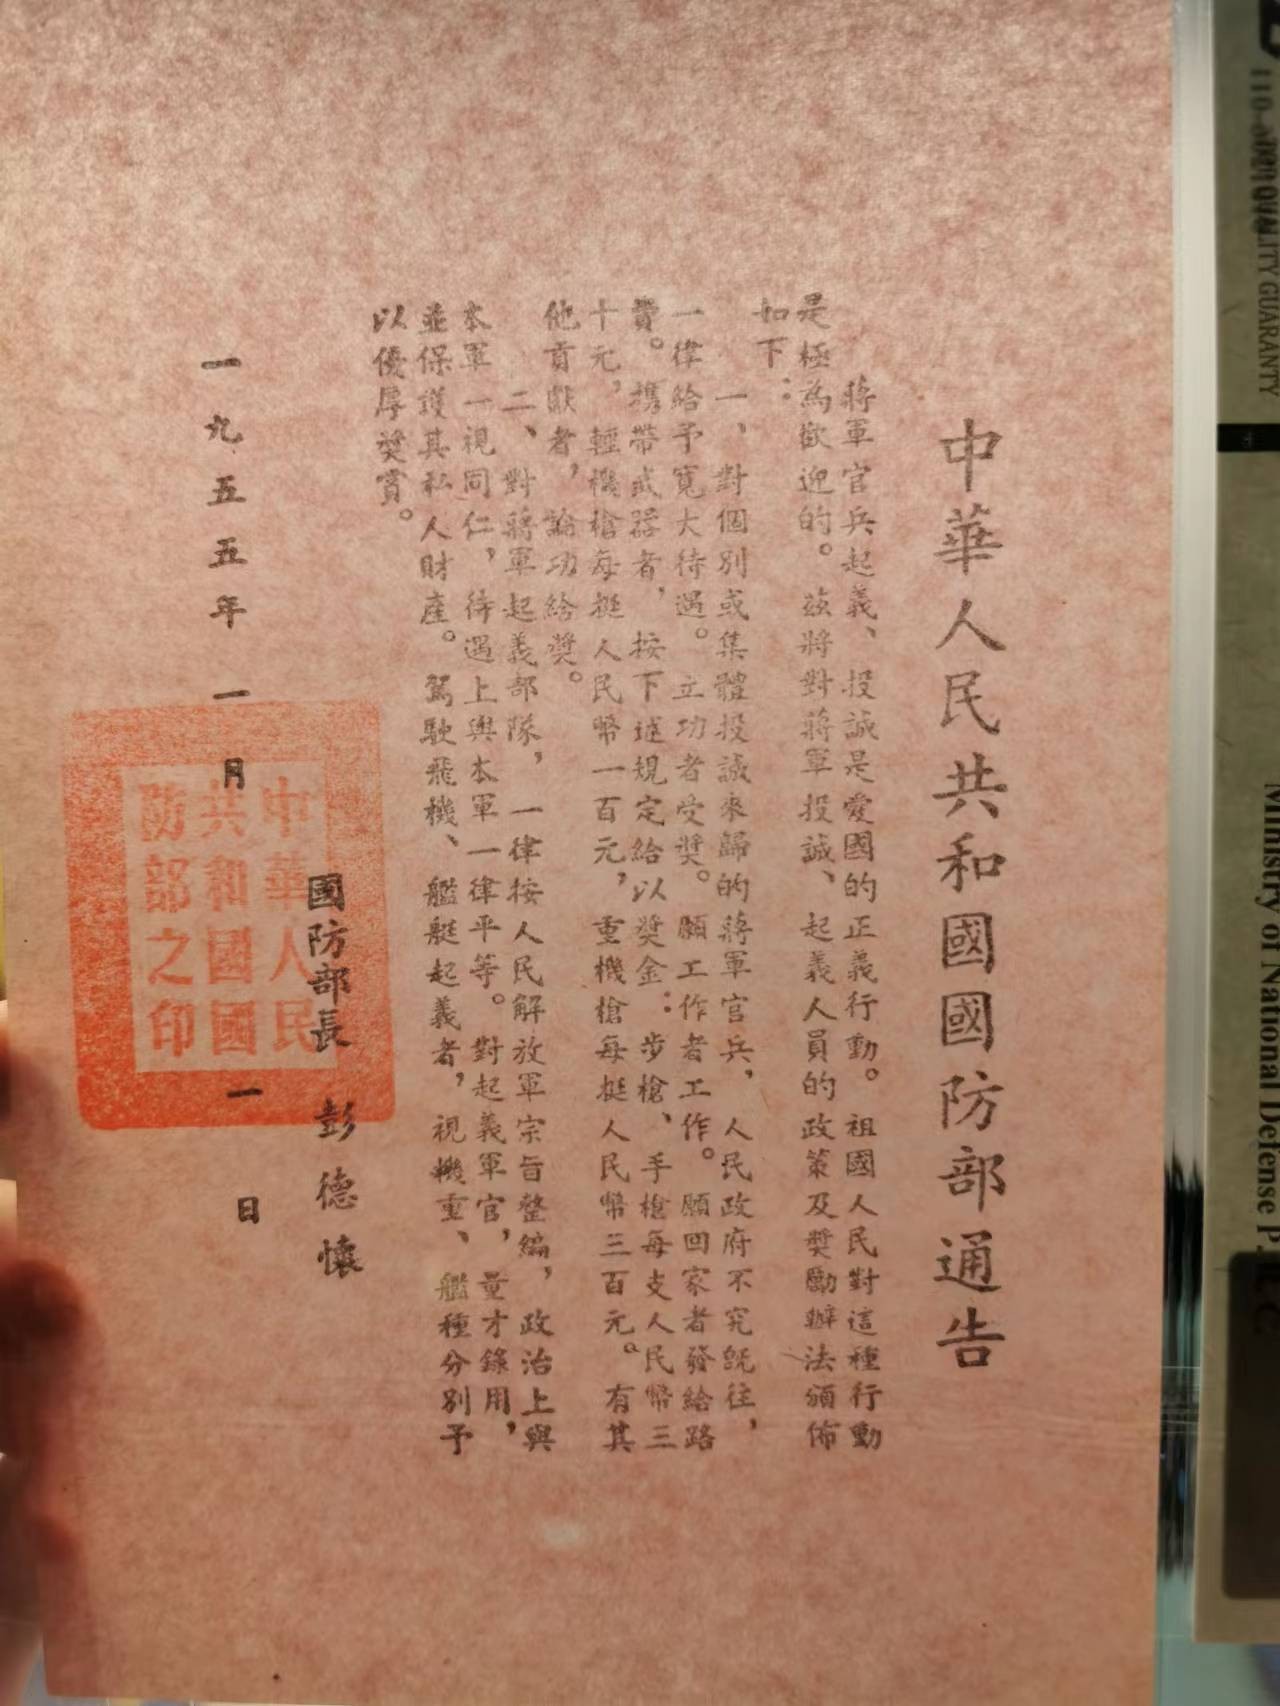 中華人民共和國國防部通告
蔣軍官兵起義、投誠是愛國的正義行動。祖國人民對這種行動
是極為歡迎的。茲將對蔣軍投誠、起義人員的政策及奬勵辦法頒佈
如下：
一、對個別或集體投誠來歸的蔣軍官兵，人民政府不究旣往，
一律給予寬大待遇。立功者受奬。願工作者工作。願回家者發給路
費。携帶武器者，按下述規定給以奬金：步槍、手槍每支人民幣三
十元，輕機槍每挺人民幣一百元，重機槍每挺人民幣三百元。有其
他貢獻者，論功給奬。
二、對蔣軍起義部隊，一律按人民解放軍宗旨整編，政治上與
本軍一視同仁，待遇上與本軍一律平等。對起義軍官，量才錄用，
並保護其私人財產。駕駛飛機、艦艇起義者，視機重、艦種分別予
以優厚奬賞。
國防部長 彭德懷
一九五五年一月一日
中華人民
共和國國
防部之印
QUALITY GUARANTY
Ministry of National Defense